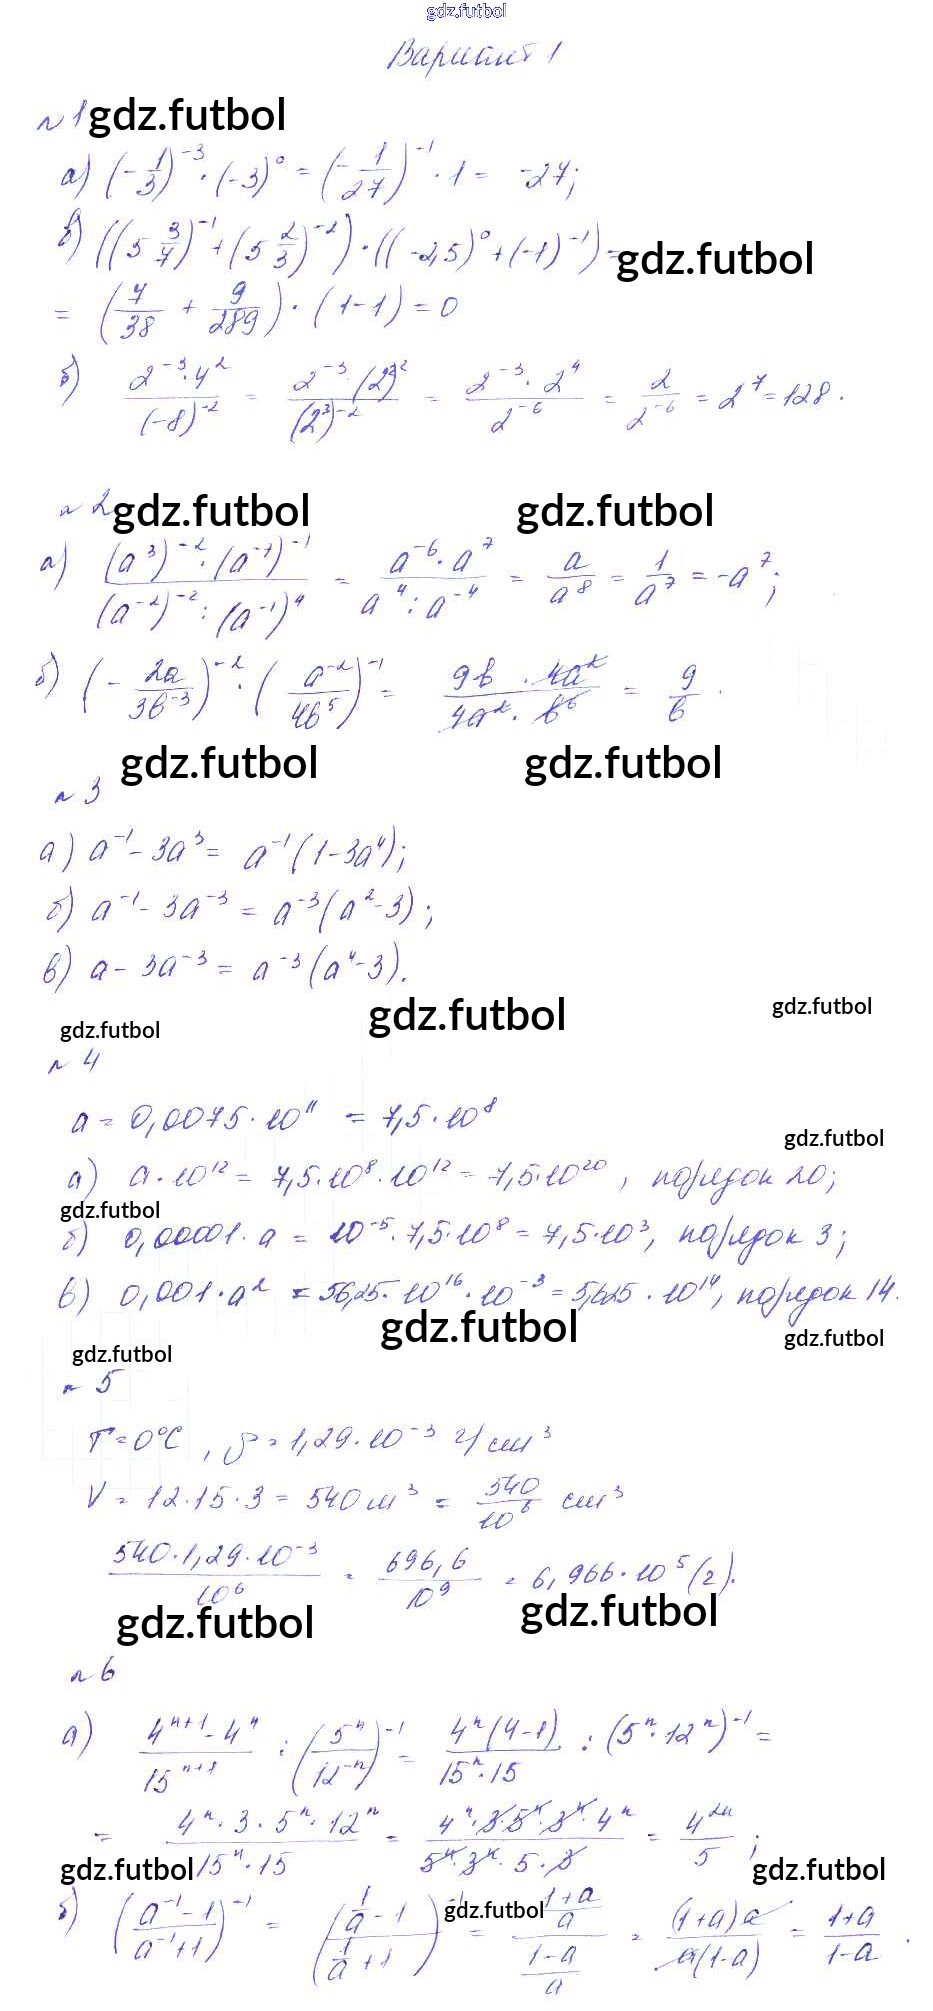 gdz.futbol
Вариант 1
№1 gdz.futbol
а) (-1/3)^-3 · (-3)^0 = (-1/27)^-1 · 1 = -27;
в) ((5 3/7)^-1 + (5 2/3)^-2) · ((-2,5)^0 + (-1)^-1) =
gdz.futbol
= (7/38 + 9/289) · (1-1) = 0
б) (2^-3 · 4^2)/(-8)^-2 = (2^-3 · (2^2)^2)/(2^3)^-2 = (2^-3 · 2^4)/2^-6 = 2/2^-6 = 2^7 = 128.
№2 gdz.futbol gdz.futbol
а) ((a^3)^-2 · (a^-7)^-1)/((a^-2)^-2 : (a^-1)^4) = (a^-6 · a^7)/(a^4 : a^-4) = a/a^8 = 1/a^7 = -a^7;
б) (-2a/3b^-3)^-2 · (a^-2/4b^5)^-1 = (9b · 4a^2)/(4a^2 · b^6) = 9/b.
gdz.futbol gdz.futbol
№3
а) a^-1 - 3a^3 = a^-1(1-3a^4);
б) a^-1 - 3a^-3 = a^-3(a^2-3);
в) a - 3a^-3 = a^-3(a^4-3).
gdz.futbol gdz.futbol
gdz.futbol
№4
a = 0,0075 · 10^11 = 7,5 · 10^8
gdz.futbol
а) a · 10^12 = 7,5 · 10^8 · 10^12 = 7,5 · 10^20, порядок 20;
gdz.futbol
б) 0,00001 · a = 10^-5 · 7,5 · 10^8 = 7,5 · 10^3, порядок 3;
в) 0,001 · a^2 = 56,25 · 10^16 · 10^-3 = 5,625 · 10^14, порядок 14.
gdz.futbol gdz.futbol
gdz.futbol
№5
T = 0°C, ρ = 1,29 · 10^-3 г/см^3
V = 12 · 15 · 3 = 540 м^3 = 540/10^6 см^3
(540 · 1,29 · 10^-3)/10^6 = 696,6/10^9 = 6,966 · 10^5 (г).
gdz.futbol gdz.futbol
№6
а) (4^(n+1) - 4^n)/15^(n+1) : (5^n/12^-n)^-1 = 4^n(4-1)/(15^n · 15) : (5^n · 12^n)^-1 =
= (4^n · 3 · 5^n · 12^n)/(15^n · 15) = (4^n · 3 · 5^n · 3^n · 4^n)/(5^n · 3^n · 5 · 3) = 4^2n/5;
gdz.futbol gdz.futbol
б) ((a^-1 - 1)/(a^-1 + 1))^-1 = ((1/a - 1)/(1/a + 1))^-1 = ((1+a)/a)/((1-a)/a) = ((1+a)a)/(a(1-a)) = (1+a)/(1-a).
gdz.futbol